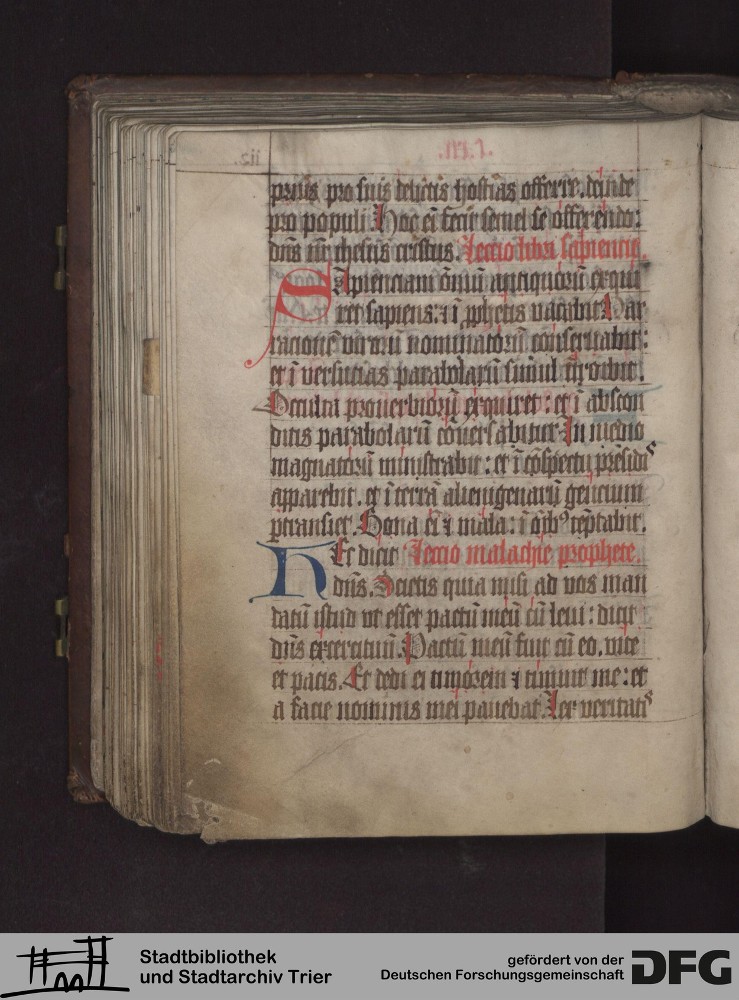 prius pro suis delictis hostias offerre. deinde
pro populi. Hoc eī fecit semel se offerendo:
dn̄s nr̄ ihesus cristus. Lectio libri sapiencie.
SApienciam om̄iū antiquorū exqui
ret sapiens: ⁊ ī ꝓphetis vacabit. Nar
racionē virorū nominatorū conseruabit:
et ī versutias parabolarū simul ītroibit.
Occulta prouerbiorū exquiret: et ī abscon
ditis parabolarū cōuersabitur. In medio
magnatorū ministrabit: et ī cōspectu presidis
apparebit. et ī terrā alienigenarū gencium
ꝑtransiet. Bona eī ⁊ mala: ī oībꝰ tēptabit.
HEc dicit Lectio malachie prophete.
dn̄s. Scietis quia misi ad vos man
datū istud vt esset pactū meū cū leui: dicit
dn̄s exercituum. Pactū meū fuit cū eo. vite
et pacis. Et dedi ei timorem ⁊ timuit me: et
a facie nominis mei pauebat. Lex veritatis
Stadtbibliothek
und Stadtarchiv Trier
gefördert von der
Deutschen Forschungsgemeinschaft
DFG